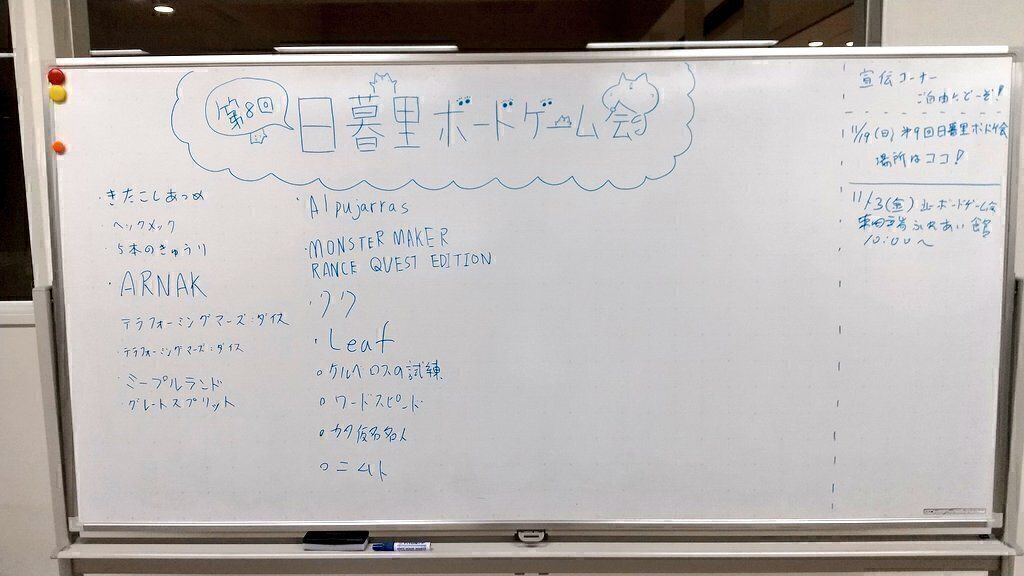 第8回
日暮里ボードゲーム会
・きたこしあつめ
・ヘックメック
・5本のきゅうり
・ARNAK
テラフォーミングマーズ:ダイス
・テラフォーミングマーズ:ダイス
・ミープルランド
・グレートスプリット
・Alpujarras
・MONSTER MAKER
RANCE QUEST EDITION
・クク
・Leaf
○ケルベロスの試練
○ワードスピード
○カタ仮名名人
○ニムト
宣伝コーナー
ご自由にどーぞ!
11/19(日)第9回日暮里ボドゲ会
場所はココ!
11/3(金) ボードゲーム会
ふれあい館
10:00〜